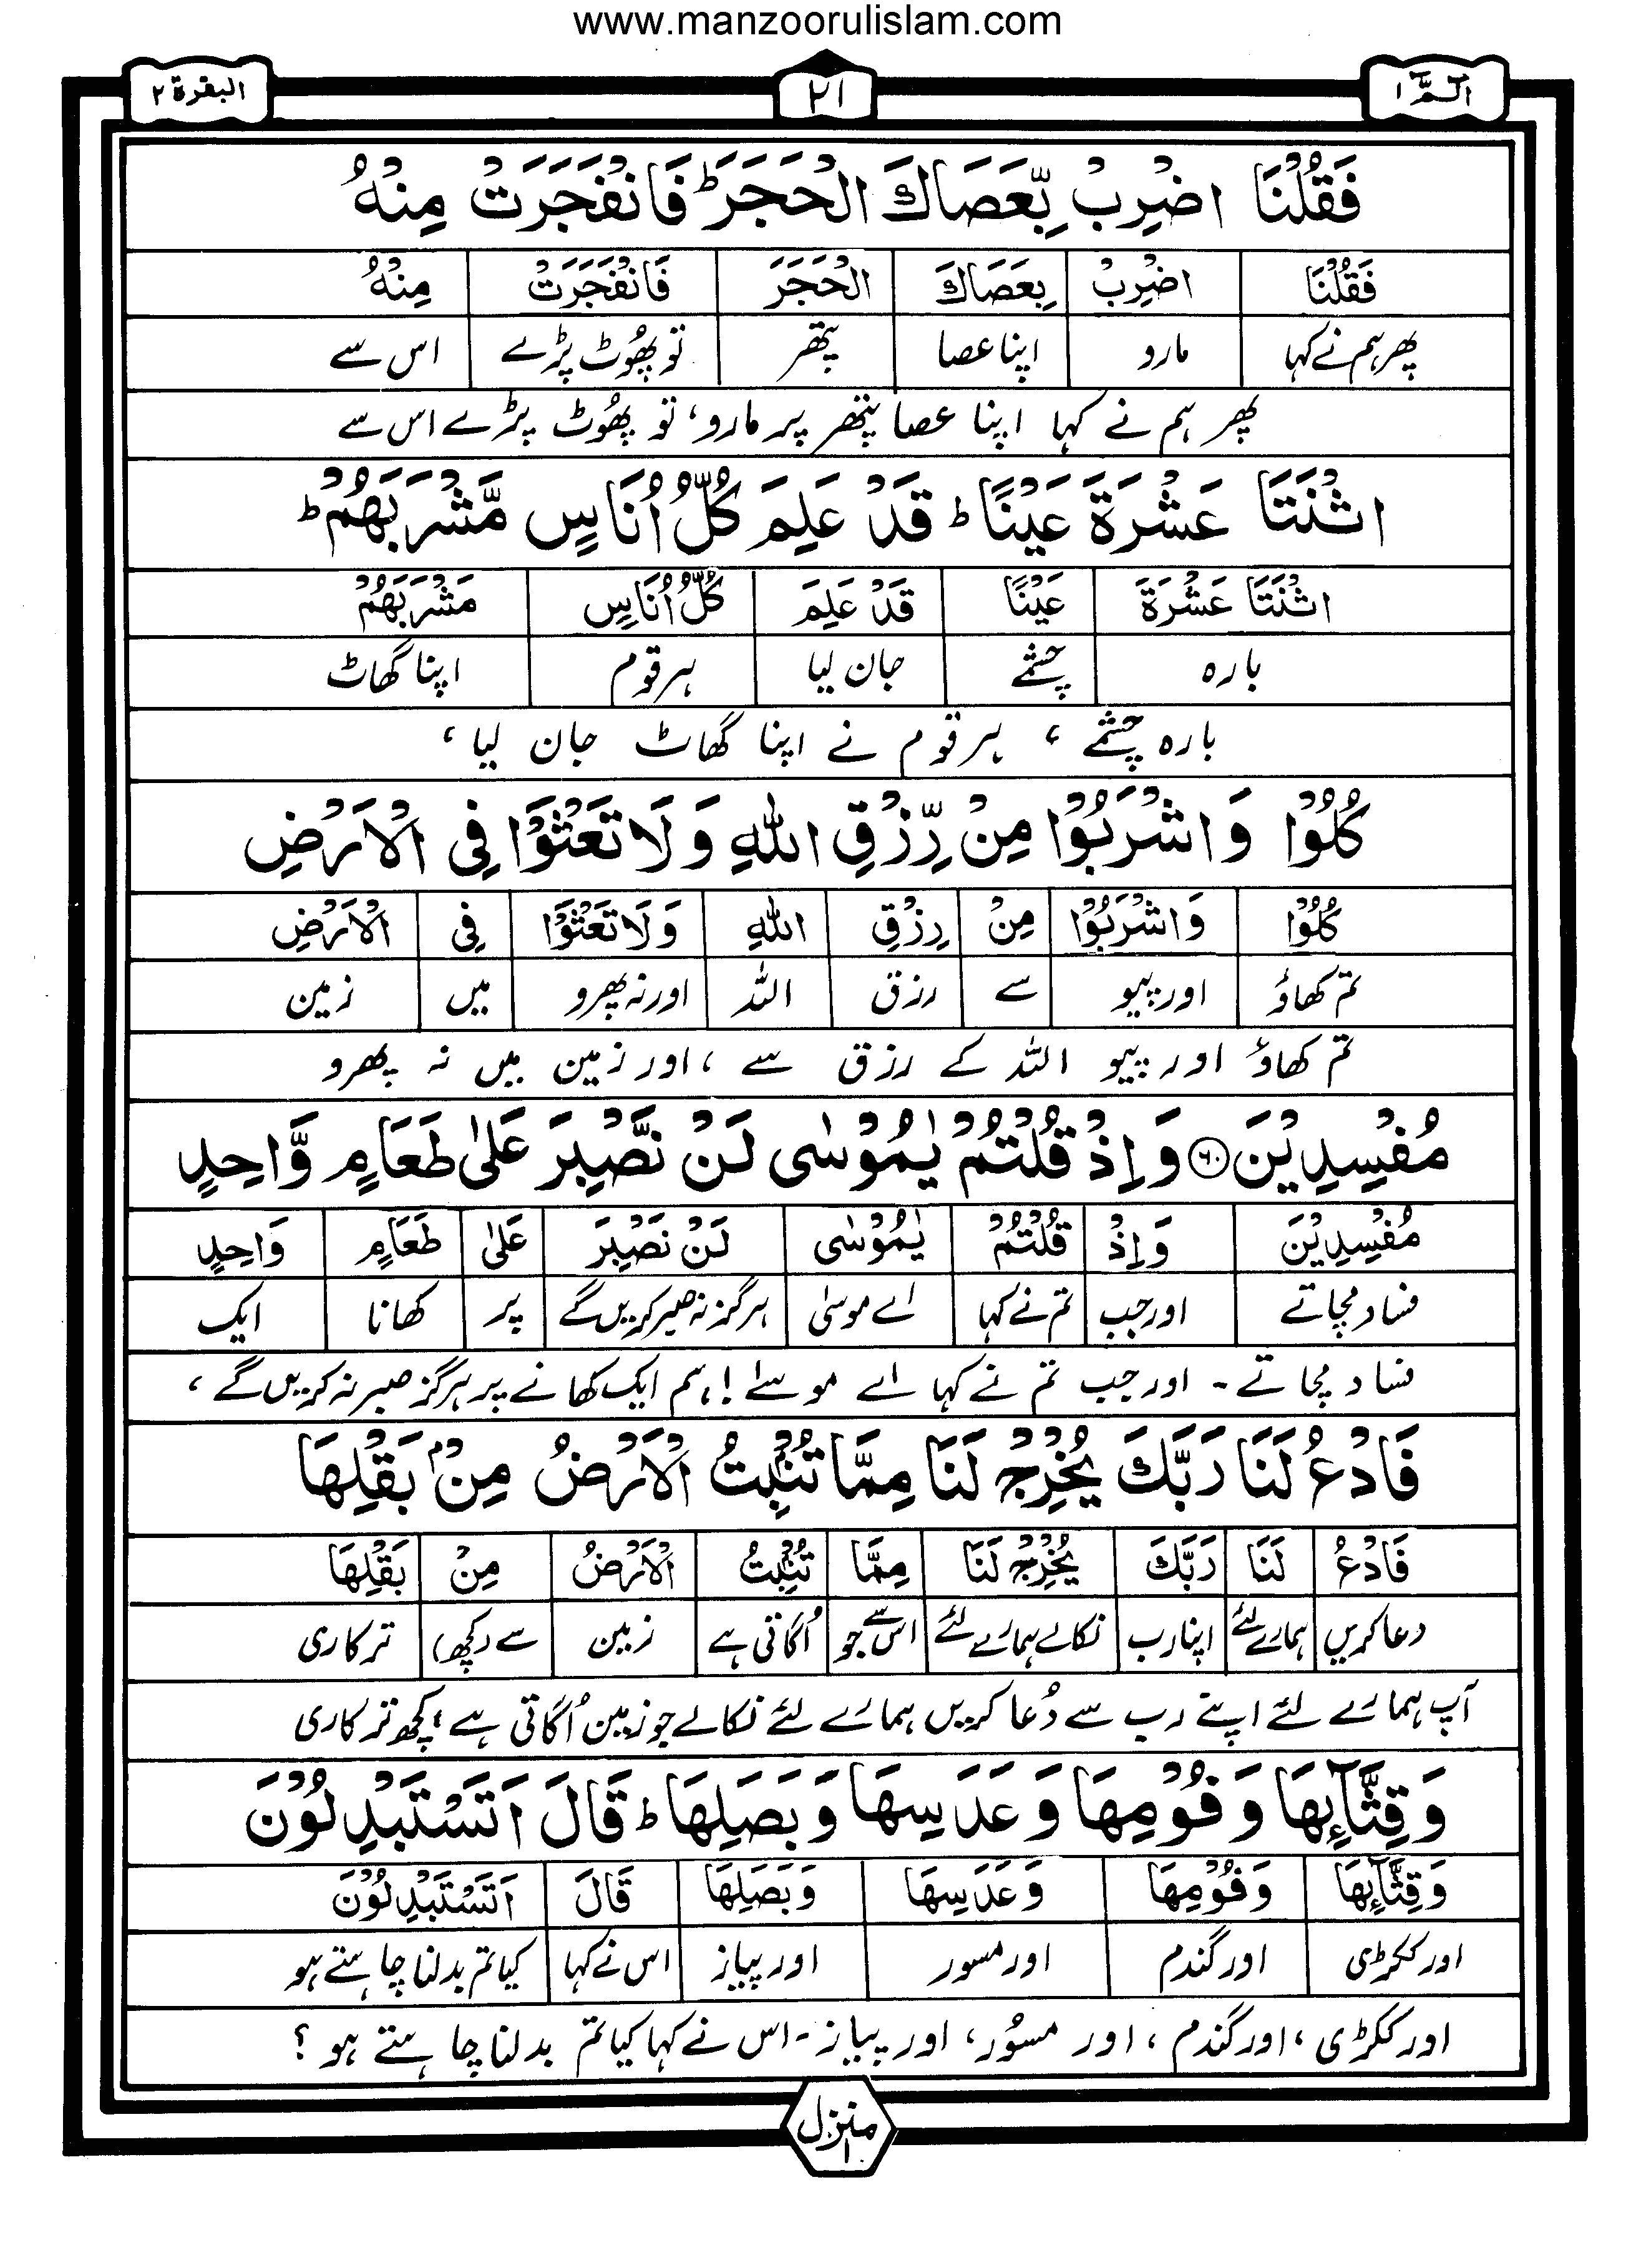 www.manzoorulislam.com
الٓمّٓ ١ ٢١ البقرة ٢
فَقُلْنَا اضْرِبْ بِّعَصَاكَ الْحَجَرَ ؕ فَانْفَجَرَتْ مِنْهُ
فَقُلْنَا اضْرِبْ بِعَصَاكَ الْحَجَرَ فَانْفَجَرَتْ مِنْهُ
پھر ہم نے کہا مارو اپنا عصا پتھر تو پھُوٹ پڑے اس سے
پھر ہم نے کہا اپنا عصا پتھر پر مارو، تو پھُوٹ پڑے اس سے
اثْنَتَا عَشْرَةَ عَيْنًا ؕ قَدْ عَلِمَ كُلُّ اُنَاسٍ مَّشْرَبَهُمْ ؕ
اثْنَتَا عَشْرَةَ عَيْنًا قَدْ عَلِمَ كُلُّ اُنَاسٍ مَشْرَبَهُمْ
بارہ چشمے جان لیا ہر قوم اپنا گھاٹ
بارہ چشمے ، ہر قوم نے اپنا گھاٹ جان لیا ،
كُلُوْا وَاشْرَبُوْا مِنْ رِّزْقِ اللّٰهِ وَلَا تَعْثَوْا فِى الْاَرْضِ
كُلُوْا وَاشْرَبُوْا مِنْ رِزْقِ اللّٰهِ وَلَا تَعْثَوْا فِى الْاَرْضِ
تم کھاؤ اور پیو سے رزق اللہ اور نہ پھرو میں زمین
تم کھاؤ اور پیو اللہ کے رزق سے ، اور زمین میں نہ پھرو
مُفْسِدِيْنَ ﴿٦٠﴾ وَاِذْ قُلْتُمْ يٰمُوْسٰى لَنْ نَّصْبِرَ عَلٰى طَعَامٍ وَّاحِدٍ
مُفْسِدِيْنَ وَاِذْ قُلْتُمْ يٰمُوْسٰى لَنْ نَصْبِرَ عَلٰى طَعَامٍ وَاحِدٍ
فساد مچاتے اور جب تم نے کہا اے موسیٰ ہرگز نہ صبر کریں گے پر کھانا ایک
فساد مچاتے ۔ اور جب تم نے کہا اے موسیٰ ! ہم ایک کھانے پر ہرگز صبر نہ کریں گے ،
فَادْعُ لَنَا رَبَّكَ يُخْرِجْ لَنَا مِمَّا تُنْۢبِتُ الْاَرْضُ مِنْۢ بَقْلِهَا
فَادْعُ لَنَا رَبَّكَ يُخْرِجْ لَنَا مِمَّا تُنْۢبِتُ الْاَرْضُ مِنْ بَقْلِهَا
دعا کریں ہمارے لئے اپنا رب نکالے ہمارے لئے اس سے جو اُگاتی ہے زمین سے (کچھ) ترکاری
آپ ہمارے لئے اپنے رب سے دُعا کریں ہمارے لئے نکالے جو زمین اُگاتی ہے ، کچھ ترکاری
وَقِثَّآئِهَا وَفُوْمِهَا وَعَدَسِهَا وَبَصَلِهَا ؕ قَالَ اَتَسْتَبْدِلُوْنَ
وَقِثَّآئِهَا وَفُوْمِهَا وَعَدَسِهَا وَبَصَلِهَا قَالَ اَتَسْتَبْدِلُوْنَ
اور ککڑی اور گندم اور مسور اور پیاز اس نے کہا کیا تم بدلنا چاہتے ہو
اور ککڑی ، اور گندم ، اور مسُور ، اور پیاز ۔ اس نے کہا کیا تم بدلنا چاہتے ہو ؟
منزل ١